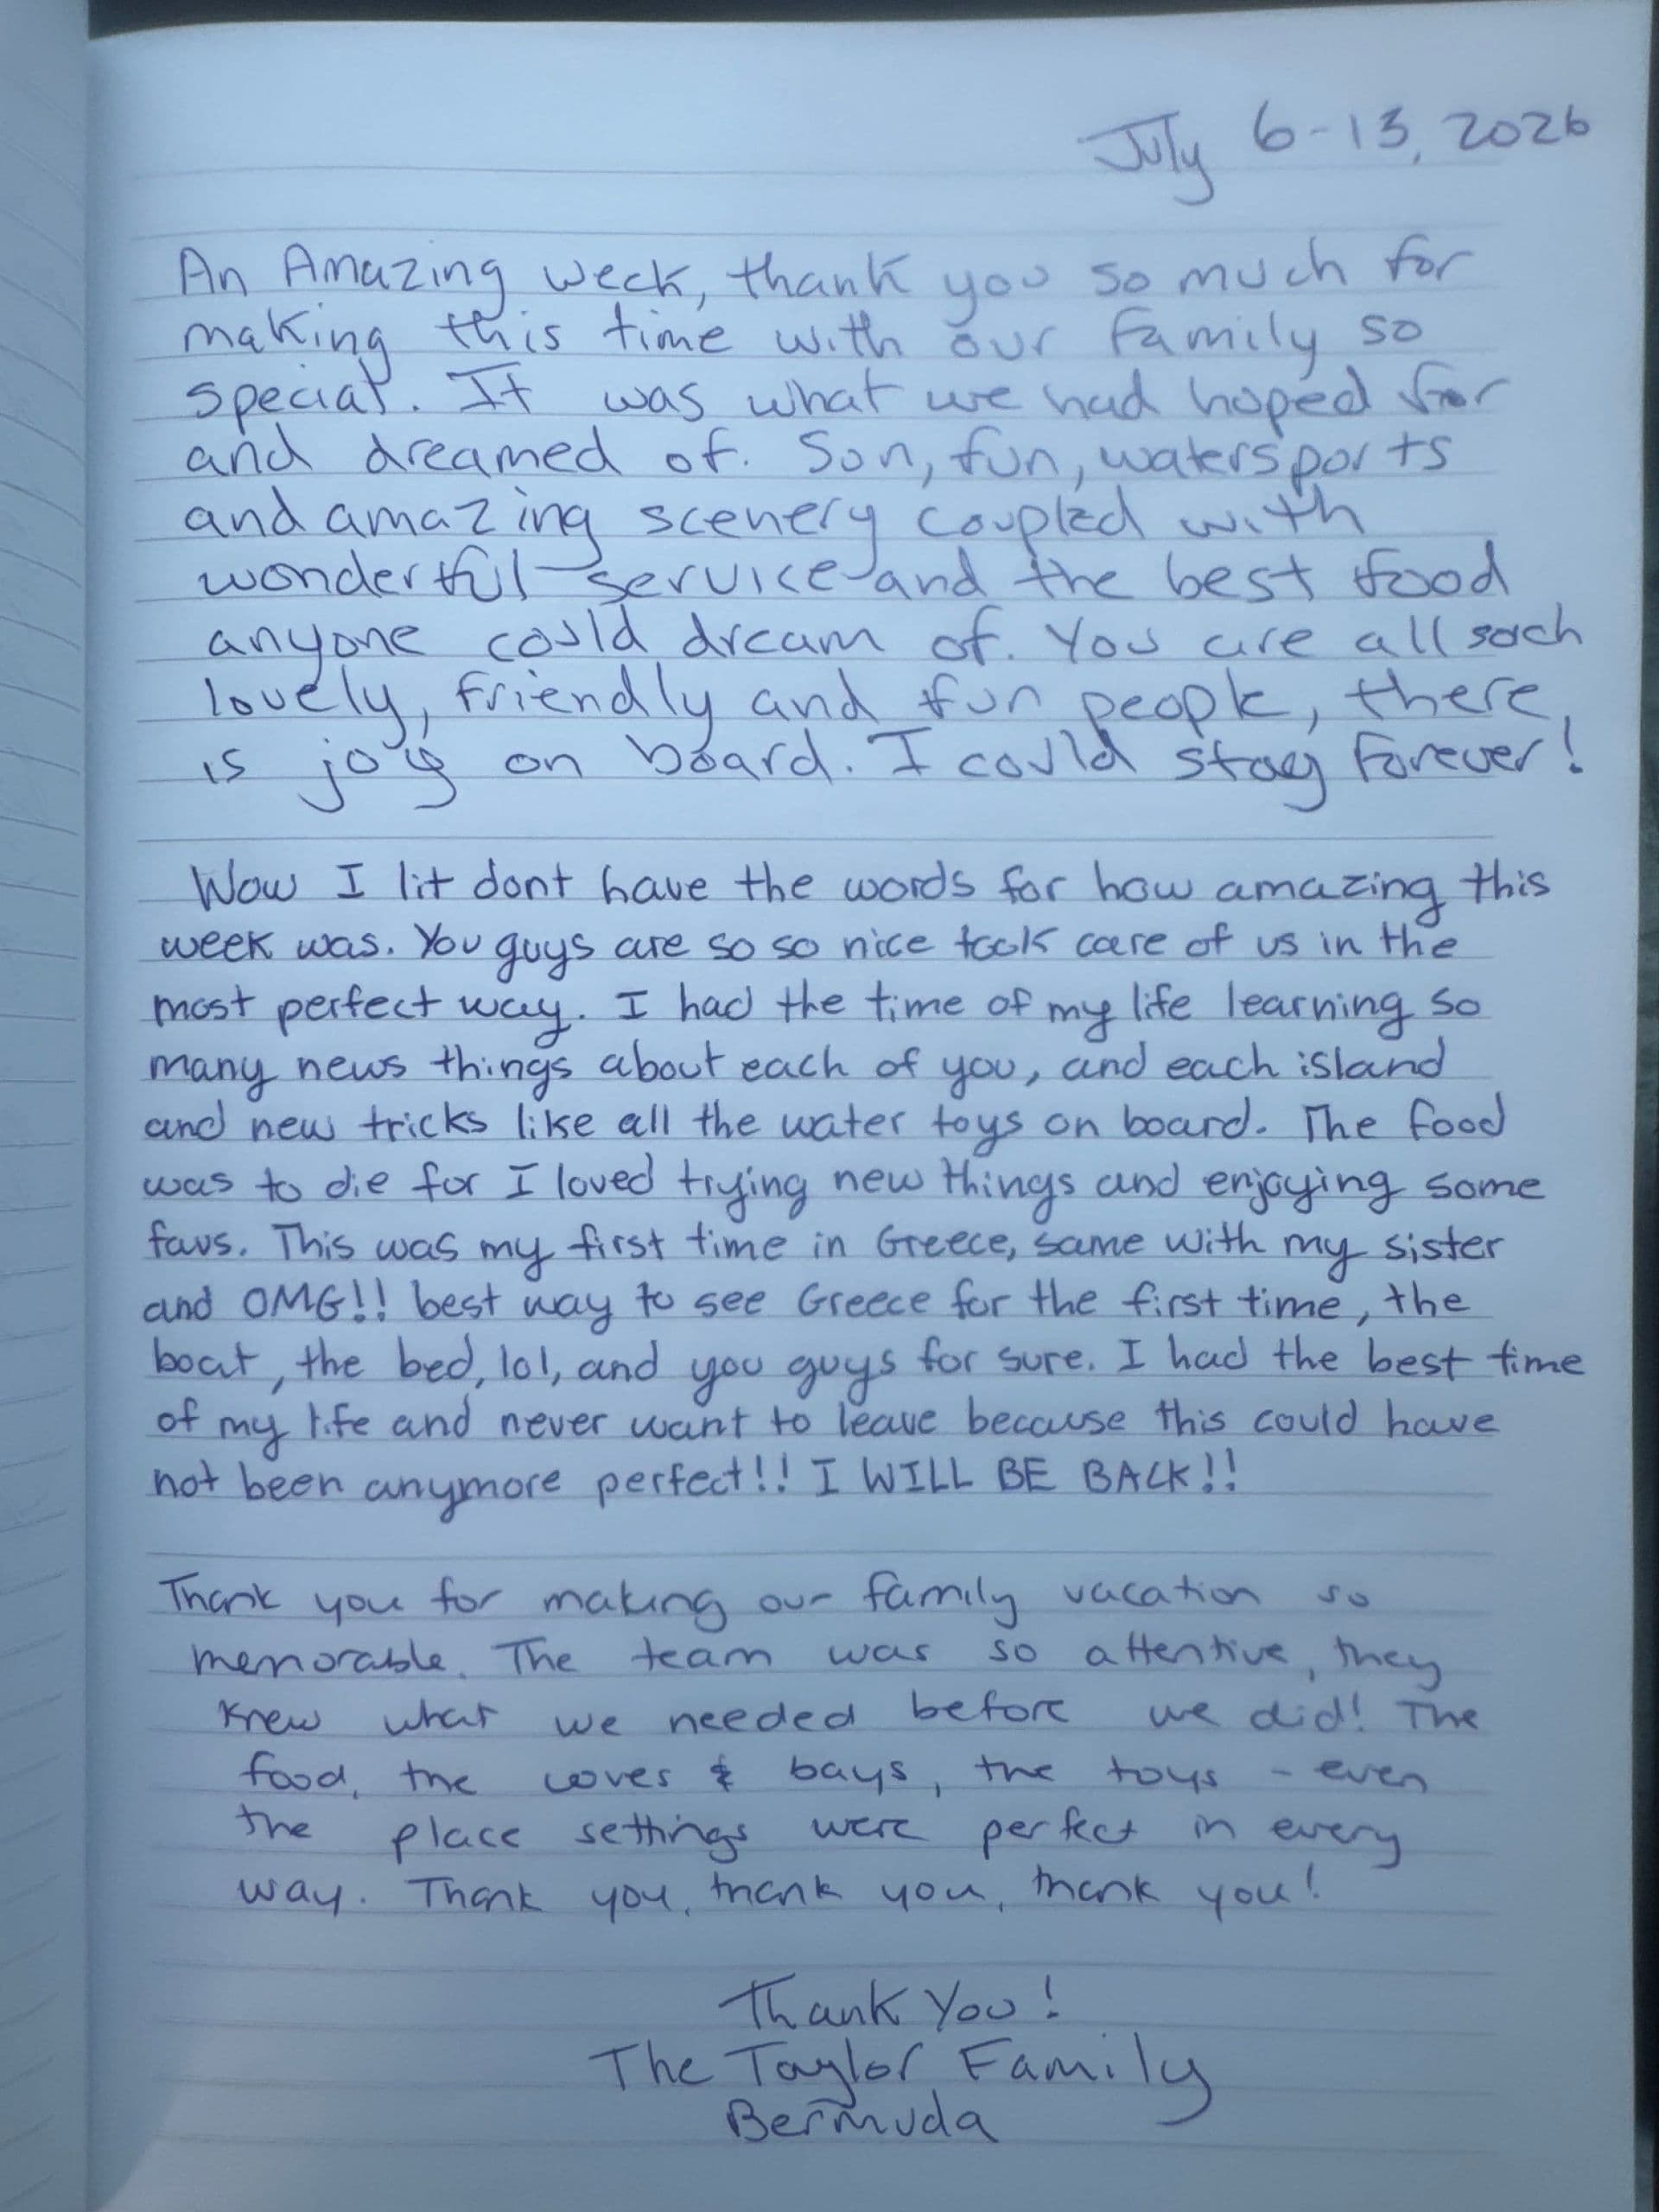 July 6-13, 2026
An Amazing week, thank you so much for
making this time with our family so
special. It was what we had hoped for
and dreamed of. Sun, fun, watersports
and amazing scenery coupled with
wonderful service and the best food
anyone could dream of. You are all such
lovely, friendly and fun people, there
is joy on board. I could stay forever!
Wow I lit dont have the words for how amazing this
week was. You guys are so so nice took care of us in the
most perfect way. I had the time of my life learning so
many news things about each of you, and each island
and new tricks like all the water toys on board. The food
was to die for I loved trying new things and enjoying some
favs. This was my first time in Greece, same with my sister
and OMG!! best way to see Greece for the first time, the
boat, the bed, lol, and you guys for sure. I had the best time
of my life and never want to leave because this could have
not been anymore perfect!! I WILL BE BACK!!
Thank you for making our family vacation so
memorable. The team was so attentive, they
knew what we needed before we did! The
food, the coves & bays, the toys - even
the place settings were perfect in every
way. Thank you, thank you, thank you!
Thank You!
The Taylor Family
Bermuda